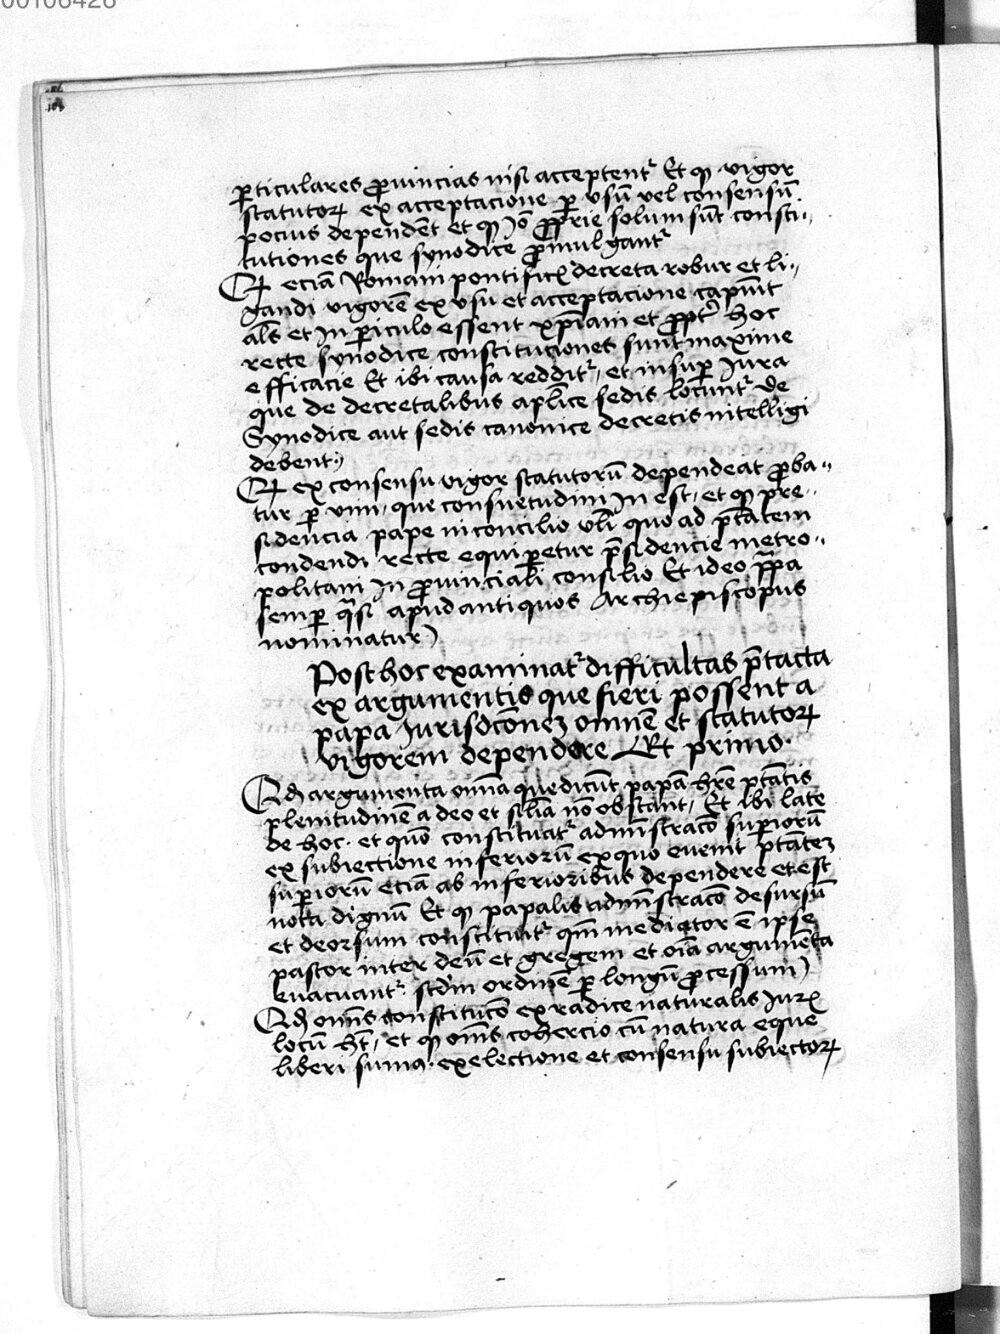 00106426
ꝑticulares ꝓvincias nisi acceptentʳ Et ꝙ vigor
statutoꝝ ex acceptacione ꝑ vsū vel consensū
pocius dependēt et ꝙ iō ꝓprie solum sūt consti-
tutiones que synodice ꝓmulgantʳ
Qꝫ eciā Romani pontificꝭ decreta robur et li-
gandi vigorē ex vsu et acceptacione capiūt
al̄s et In ꝑiculo essent xp̄iani et ꝓptʳ hoc
recte synodice constituciones sunt maxime
efficacie Et ibi causa redditʳ, et insuꝑ Jura
que de decretalibus apl̄ice sedis locūntʳ de
Synodice aut sedis canonice decretis intelligi
debent
Qꝫ ex consensu vigor statutorū dependeat ꝓba-
tur ꝑ vim, que consuetudini In est, et ꝙ pre-
sidencia pape in concilio vl̄i quo ad ptātem
condendi recte equiꝑetur p̄sidencie metro-
politani In ꝓvinciali consilio Et ideo papa
semꝑ q̄si apud antiquos Archiepiscopus
nominatur
Post hoc examinatʳ difficultas p̄tacta
ex argumentis que fieri possent a
papa Jurisdc̄onez omnē et statutoꝝ
vigorem dependere Et primo
Qꝫ argumenta om̄ia que dicūt papā hr̄e ptātis
plenitudinē a deo et sil̄ia nō obstant, Et ibi late
de hoc et quō constituatʳ admīstracō suꝑiorū
ex subiectione inferiorū ex quo evenit ptātez
suꝑiorū eciā ab inferioribus dependere et est
nota dignū Et ꝙ papalis admīstracō desursū
et deorsum constituitʳ qm̄ mediator ē ipse
pastor inter deū et gregem et oīa argumēta
evacuantʳ scdm̄ ordinē ꝑ longū ꝓcessum
Qꝫ om̄is constitucō ex radice naturalis Jurꝭ
locū hꝫt, et ꝙ om̄is cohercio cū natura eque
liberi sumꝰ ex electione et consensu subiectoꝝ